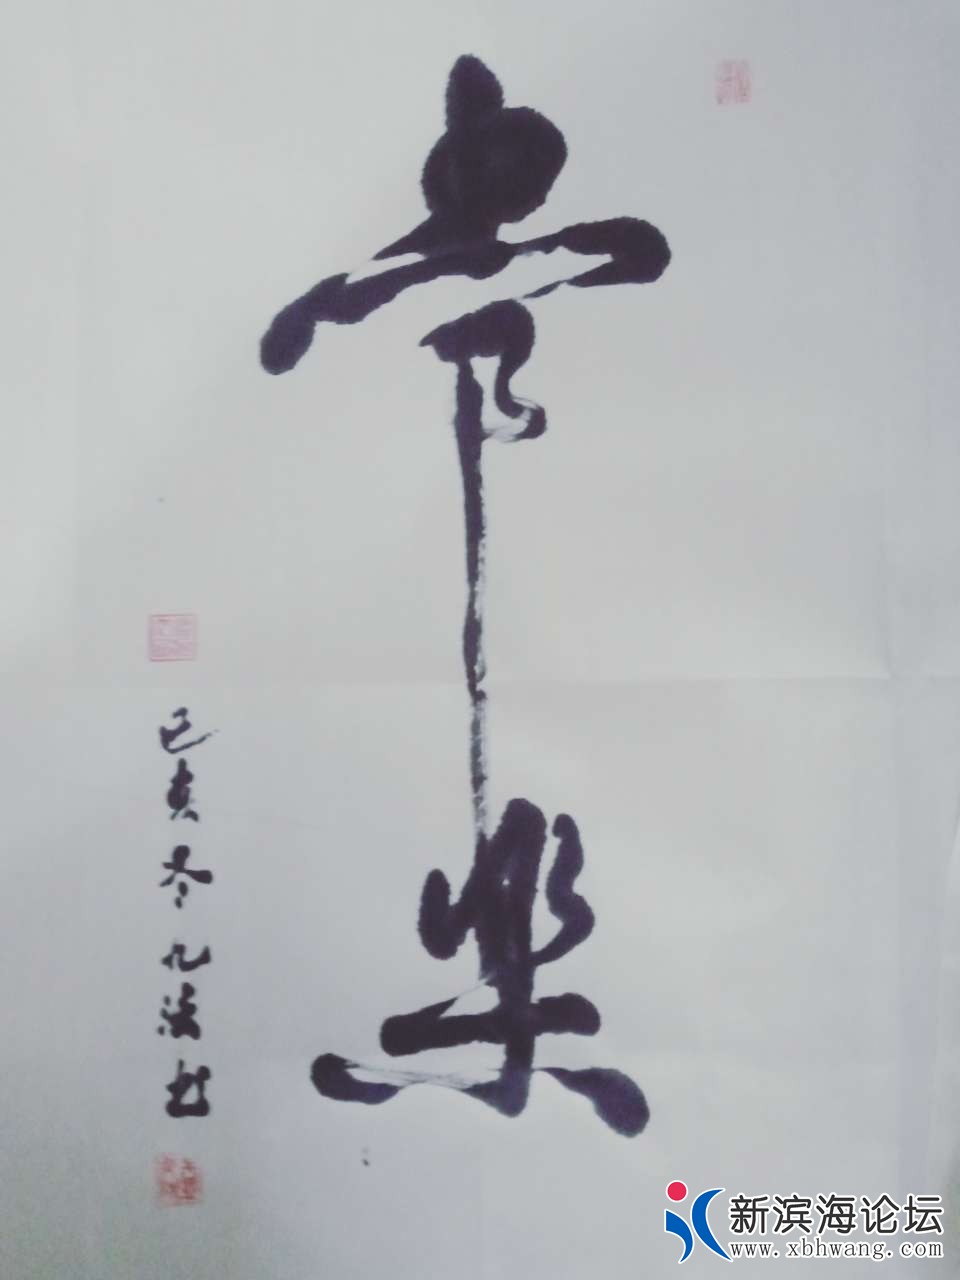 常樂
己亥冬九书
新滨海论坛
www.xbhwang.com